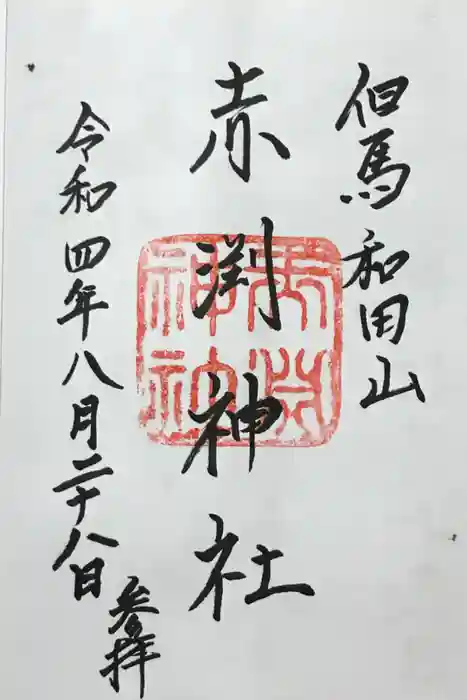 但馬和田山
赤渕神社
赤渕神社
令和四年八月二十八日
参拝